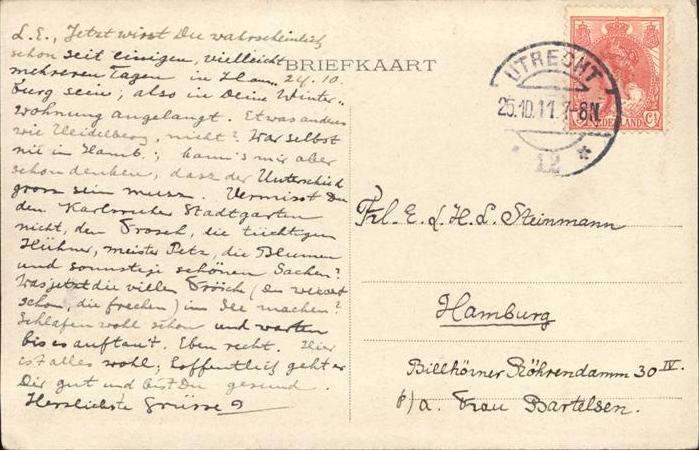 BRIEFKAART
L. E., Jetzt wirst Du wahrscheinlich
schon seit einigen, vielleicht
mehreren Tagen in Ham- 24.10.
burg sein; also in Deine Winter-
wohnung angelangt. Etwas anders
wie Heidelberg, nicht? War selbst
nie in Hamb.; kann's mir aber
schon denken, dasz der Unterschied
gross sein musz. Vermisst Du
den Karlsruher Stadtgarten
nicht, den Frosch, die tüchtigen
Hühner, meister Petz, die Blumen
und sonnstige schönen Sachen?
Was jetzt die vielen Frösch (Du weisst
schon, die frechen) im See machen?
Schlafen wohl schon und warten
bis es auftaut. Eben recht. Hier
ist alles wohl; hoffentlich geht er
Dir gut und bist Du gesund.
Herzlichste Grüsse
UTRECHT
25.10.11. 7-8N.
12
NEDERLAND
5 Ct
Frl. E. d. H. L. Steinmann
Hamburg
Billhörner Röhrendamm 30 IV.
p/a. Frau Bartelsen.